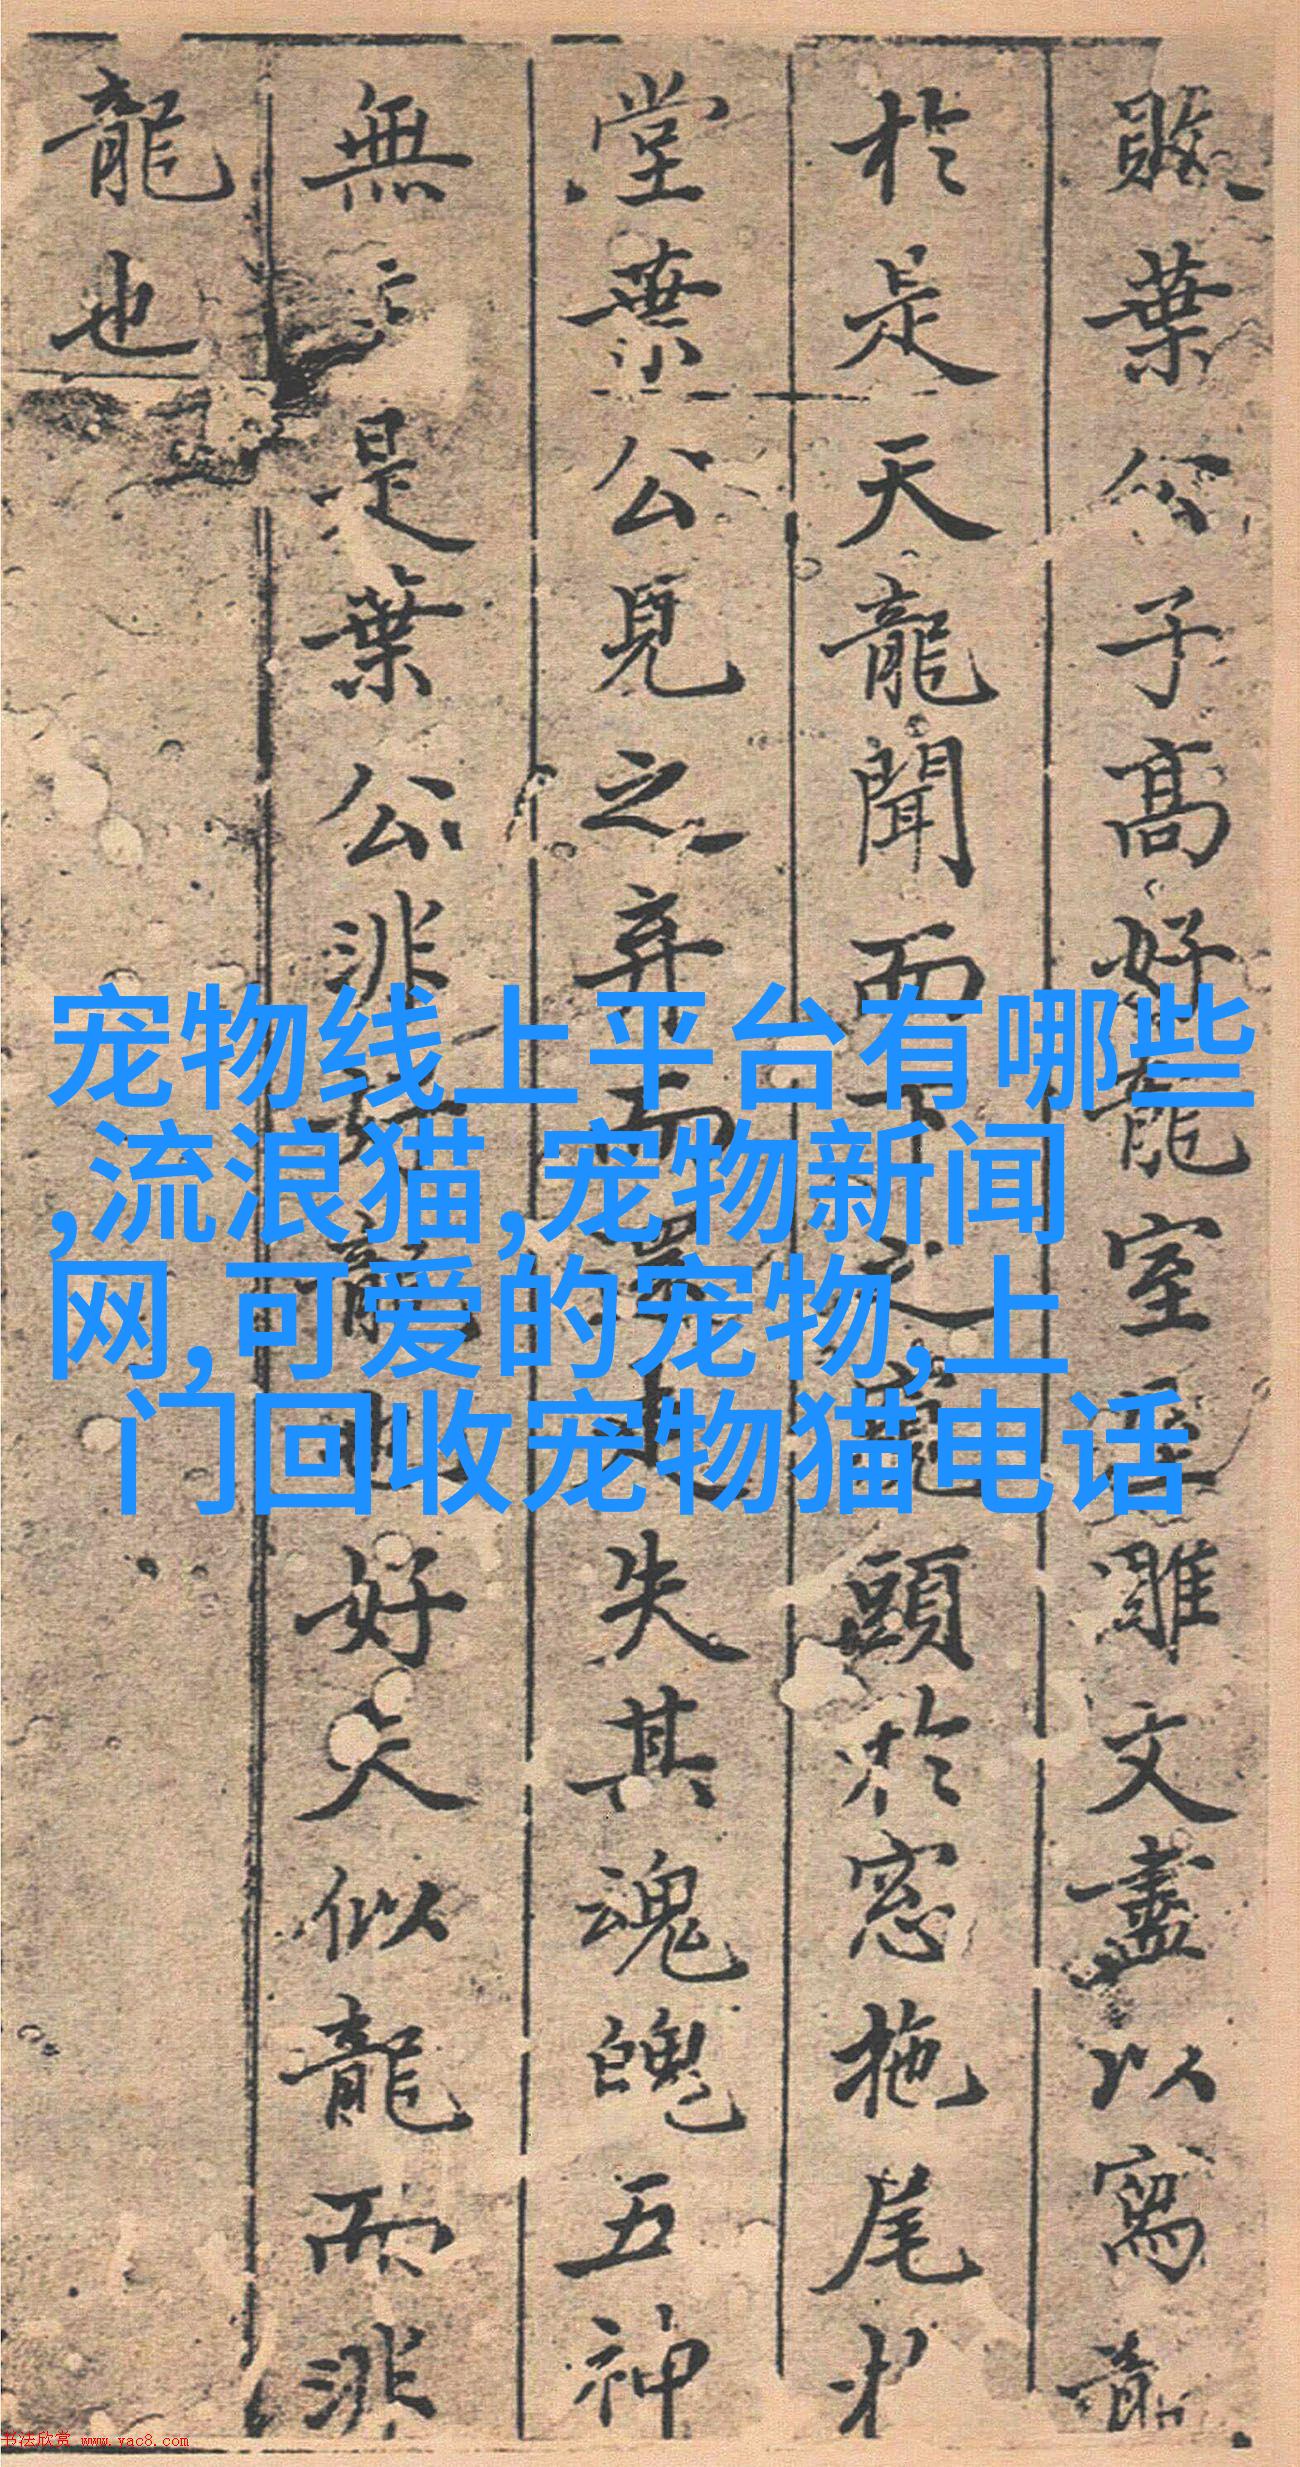 敗葉公子高好龍室雕文盡以寫龍
於是天龍聞而下之窺頭於窓拖尾
堂葉公見之弃而還走失其魂魄五神
無主是葉公非好龍也好夫似龍而非
龍也
宠物线上平台有哪些
,流浪猫,宠物新闻
网,可爱的宠物,上
门回收宠物猫电话
书法欣赏 www.yac8.com